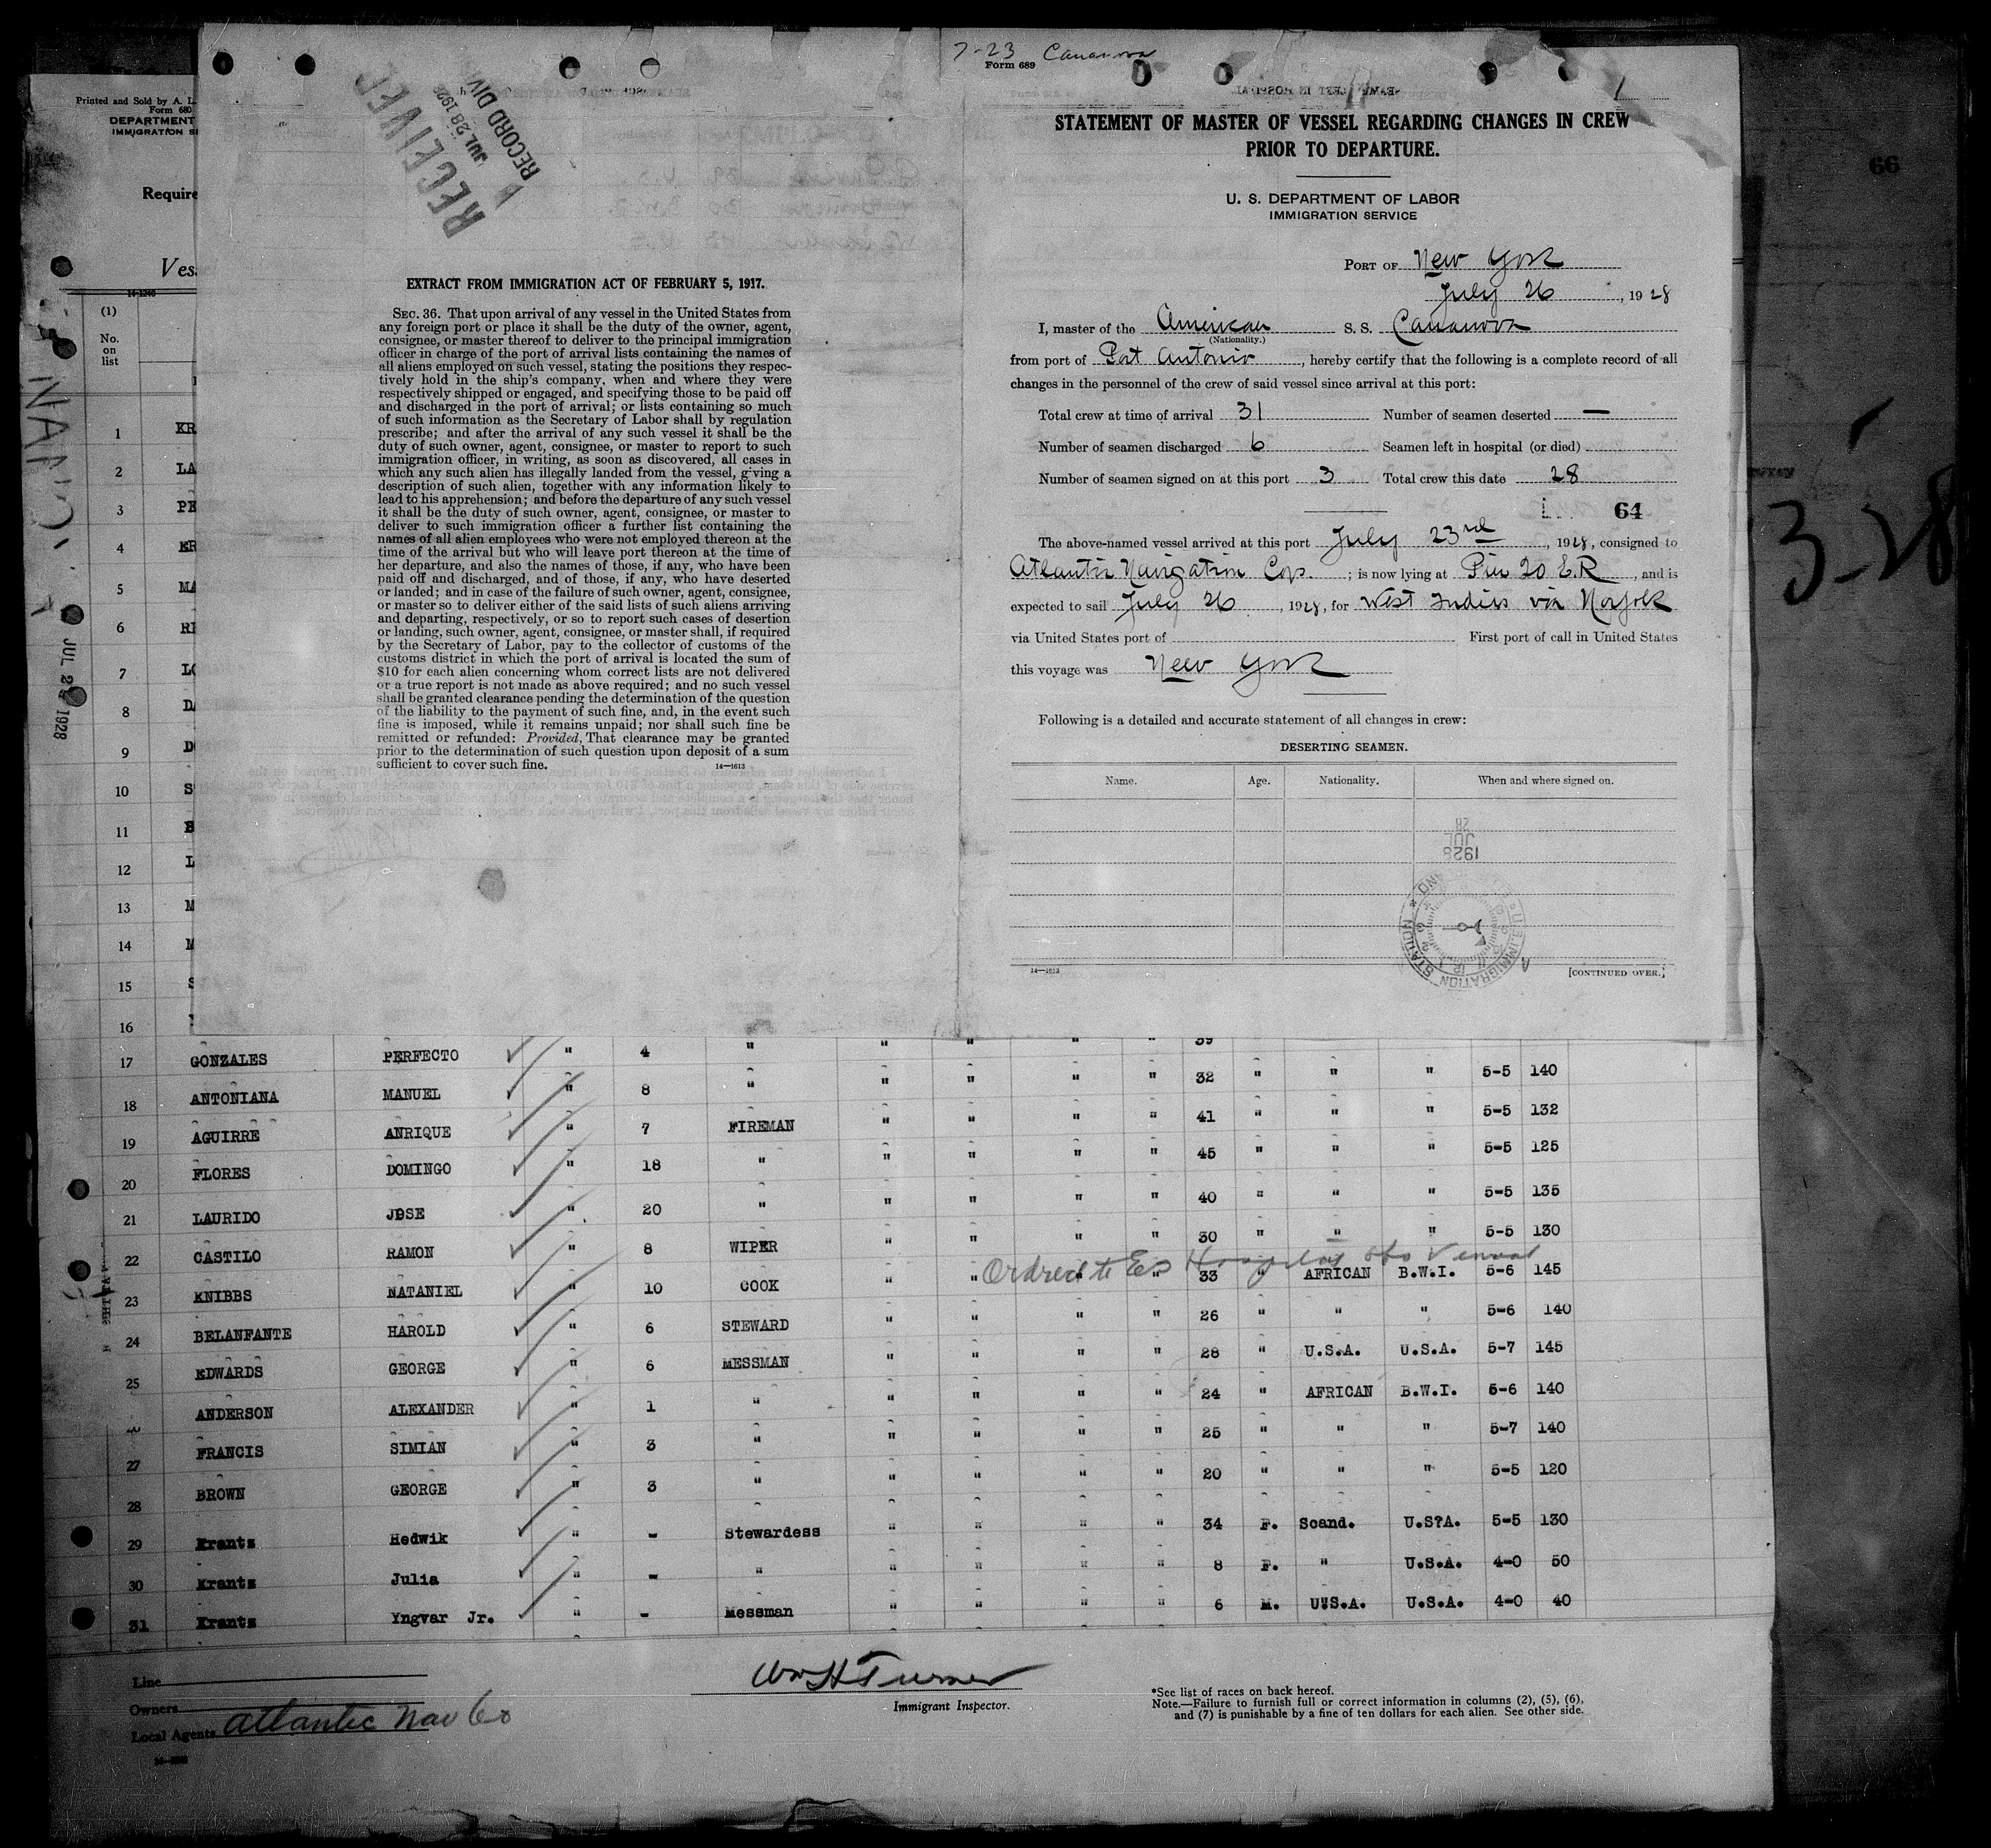 Printed and Sold by A. L.
Form 680
DEPARTMENT
IMMIGRATION
Require
Ves
14-1240
(1)
No.
on
list
1 KR
2 LA
3 PE
4 ER
5 MA
6
7 LO
8
9
10
11
12
13
14
15
16
JUL 1928
RECEIVED
JUL 28 1928
RECORD DIV
EXTRACT FROM IMMIGRATION ACT OF FEBRUARY 5, 1917.
SEC. 36. That upon arrival of any vessel in the United States from
any foreign port or place it shall be the duty of the owner, agent,
consignee, or master thereof to deliver to the principal immigration
officer in charge of the port of arrival lists containing the names of
all aliens employed on such vessel, stating the positions they respec-
tively hold in the ship's company, when and where they were
respectively shipped or engaged, and specifying those to be paid off
and discharged in the port of arrival; or lists containing so much
of such information as the Secretary of Labor shall by regulation
prescribe; and after the arrival of any such vessel it shall be the
duty of such owner, agent, consignee, or master to report to such
immigration officer, in writing, as soon as discovered, all cases in
which any such alien has illegally landed from the vessel, giving a
description of such alien, together with any information likely to
lead to his apprehension; and before the departure of any such vessel
it shall be the duty of such owner, agent, consignee, or master to
deliver to such immigration officer a further list containing the
names of all alien employees who were not employed thereon at the
time of the arrival but who will leave port thereon at the time of
her departure, and also the names of those, if any, who have been
paid off and discharged, and of those, if any, who have deserted
or landed; and in case of the failure of such owner, agent, consignee,
or master so to deliver either of the said lists of such aliens arriving
and departing, respectively, or so to report such cases of desertion
or landing, such owner, agent, consignee, or master shall, if required
by the Secretary of Labor, pay to the collector of customs of the
customs district in which the port of arrival is located the sum of
$10 for each alien concerning whom correct lists are not delivered
or a true report is not made as above required; and no such vessel
shall be granted clearance pending the determination of the question
of the liability to the payment of such fine, and, in the event such
fine is imposed, while it remains unpaid; nor shall such fine be
remitted or refunded: Provided, That clearance may be granted
prior to the determination of such question upon deposit of a sum
sufficient to cover such fine. 14—1613
7-23 Casanova
Form 689
1
STATEMENT OF MASTER OF VESSEL REGARDING CHANGES IN CREW
PRIOR TO DEPARTURE.
U. S. DEPARTMENT OF LABOR
IMMIGRATION SERVICE
PORT OF New York
July 26, 1928
I, master of the American S. S. Casanova
(Nationality.)
from port of Port Antonio, hereby certify that the following is a complete record of all
changes in the personnel of the crew of said vessel since arrival at this port:
Total crew at time of arrival 31 Number of seamen deserted —
Number of seamen discharged 6 Seamen left in hospital (or died)
Number of seamen signed on at this port 3 Total crew this date 28
64
The above-named vessel arrived at this port July 23rd, 1928, consigned to
Atlantic Navigation Cop.; is now lying at Pier 20 E.R, and is
expected to sail July 26, 1928, for West Indies via Norfolk
via United States port of First port of call in United States
this voyage was New York
Following is a detailed and accurate statement of all changes in crew:
DESERTING SEAMEN.
Name. Age. Nationality. When and where signed on.
1928
JUL
28
IMMIGRATION STATION
14—1613 [CONTINUED OVER.]
66
3-28
17 GONZALES PERFECTO " 4 " " " " " 39
18 ANTONIANA MANUEL " 8 " " " " " 32 " " " 5-5 140
19 AGUIRRE ANRIQUE " 7 FIREMAN " " " " 41 " " " 5-5 132
20 FLORES DOMINGO " 18 " " " " " 45 " " " 5-5 125
21 LAURIDO JOSE " 20 " " " " " 40 " " " 5-5 135
22 CASTILO RAMON " 8 WIPER " " " " 30 " " " 5-5 130
Ordred to Hospital
23 KNIBBS NATANIEL " 10 COOK " " " " 33 " AFRICAN B.W.I. 5-6 145
24 BELANFANTE HAROLD " 6 STEWARD " " " " 26 " " " 5-6 140
25 EDWARDS GEORGE " 6 MESSMAN " " " " 28 " U.S.A. U.S.A. 5-7 145
ANDERSON ALEXANDER " 1 " " " " " 24 " AFRICAN B.W.I. 5-6 140
27 FRANCIS SIMIAN " 3 " " " " " 25 " " " 5-7 140
28 BROWN GEORGE " 3 " " " " " 20 " " " 5-5 120
29 Krants Hedwik " - Stewardess " " " " 34 F. Scand. U.S?A. 5-5 130
30 Krants Julia " - " " " " " 8 F. " U.S.A. 4-0 50
31 Krants Yngvar Jr. " - Messman " " " " 6 M. U"S.A. U.S.A. 4-0 40
Line
Owners
Local Agents Atlantic Nav Co
Wm H Turner
Immigrant Inspector.
*See list of races on back hereof.
Note.—Failure to furnish full or correct information in columns (2), (5), (6),
and (7) is punishable by a fine of ten dollars for each alien. See other side.